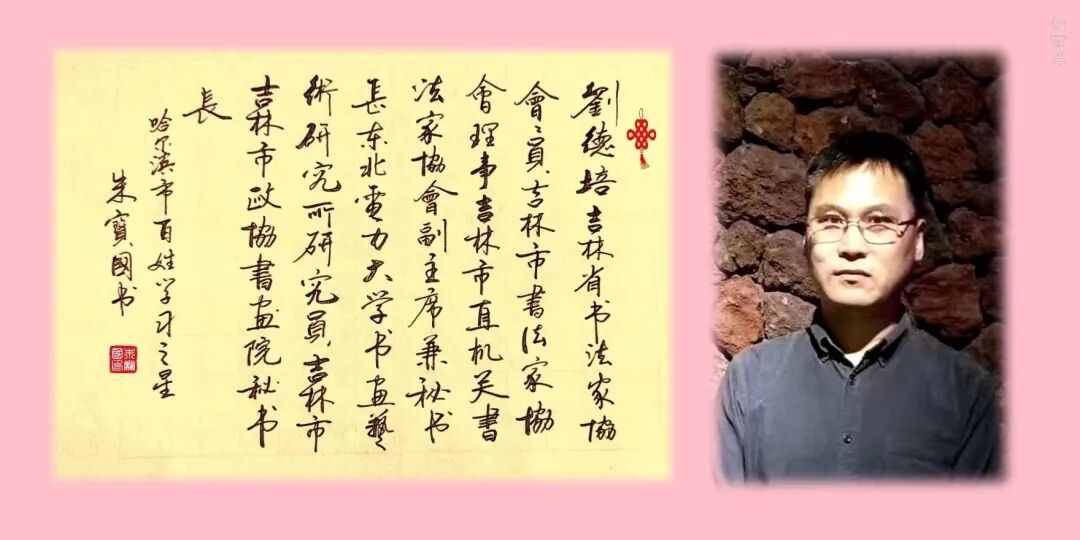 劉德培吉林省书法家協
會々員、吉林市書法家協
會理事吉林市直机关書
法家協會副主席兼秘书
長东北電力大学书画藝
術研究所研究員、吉林市
吉林市政協書画院秘书
長
哈尔滨市百姓学习之星
朱寶國书